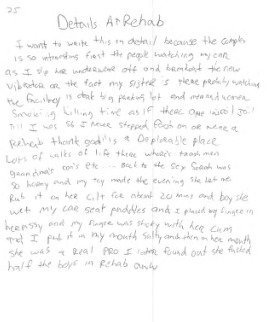 25
Details At Rehab
I want to write this in detail because the complex
is so interesting first the people watching my car
as I slip her underwear off and the new
vibrator or the fact my sister's place probably watching
the is that big parking lot and men and women
Smoking killing time as if there one was Jail
Till I was 56 I never stepped foot on or near a
Rehab thank god is a Deplorable place
Lots of walks of life there whores trash men
cons etc Back to the Sex Sarah was
so horny and my toy made the evening she let me
Rub it on her Clit for about 20 mins and boy she
wet my car seat puddles and I placed my finger in
her pussy and my finger was sticky with her cum
I put it in my mouth salty and then in her mouth
she was a Real PRO I later found out she fucked
half the boys in Rehab